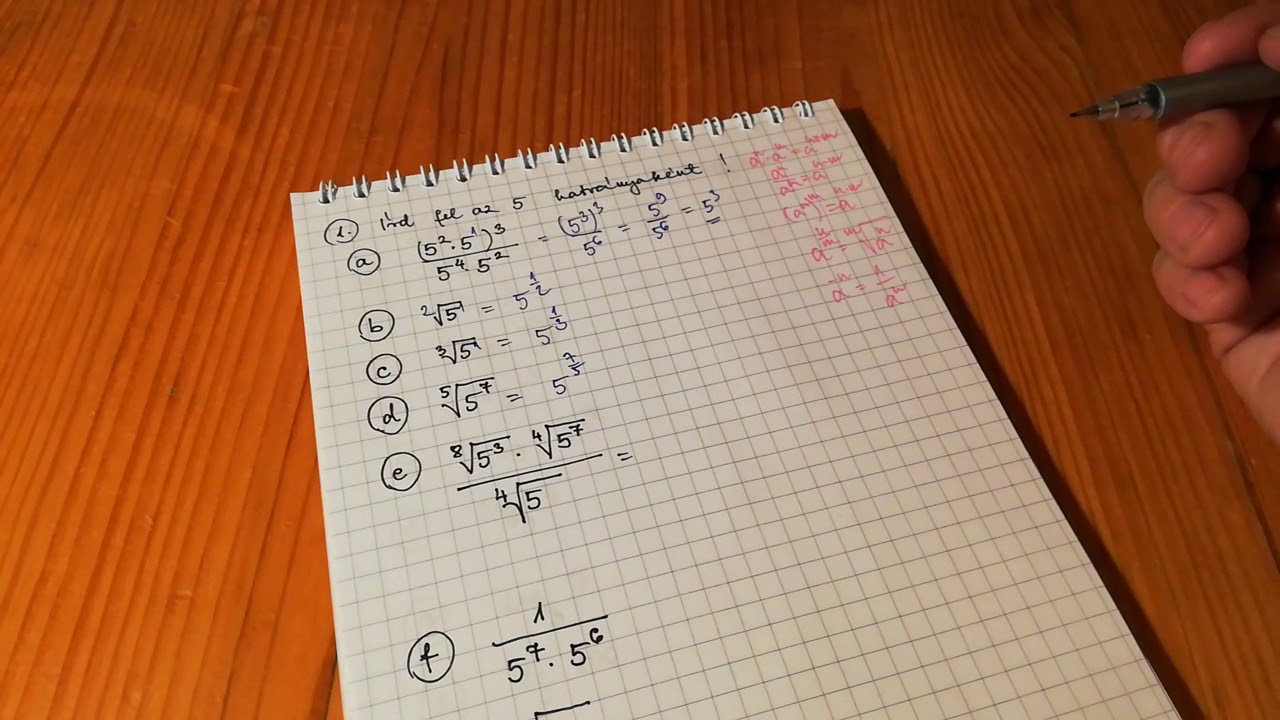 1. Írd fel az 5 hatványaként!
a (5² · 5¹)³ / (5⁴ · 5²) = (5³)³ / 5⁶ = 5⁹ / 5⁶ = 5³
b ²√5¹ = 5^(1/2)
c ³√5¹ = 5^(1/3)
d ⁵√5⁷ = 5^(7/5)
e (⁸√5³ · ⁴√5⁷) / ⁴√5 =
f 1 / (5⁷ · 5⁶)
aⁿ · aᵐ = aⁿ⁺ᵐ
aⁿ / aᵐ = aⁿ⁻ᵐ
(aⁿ)ᵐ = aⁿ·ᵐ
a^(n/m) = ᵐ√aⁿ
a⁻ⁿ = 1 / aⁿ